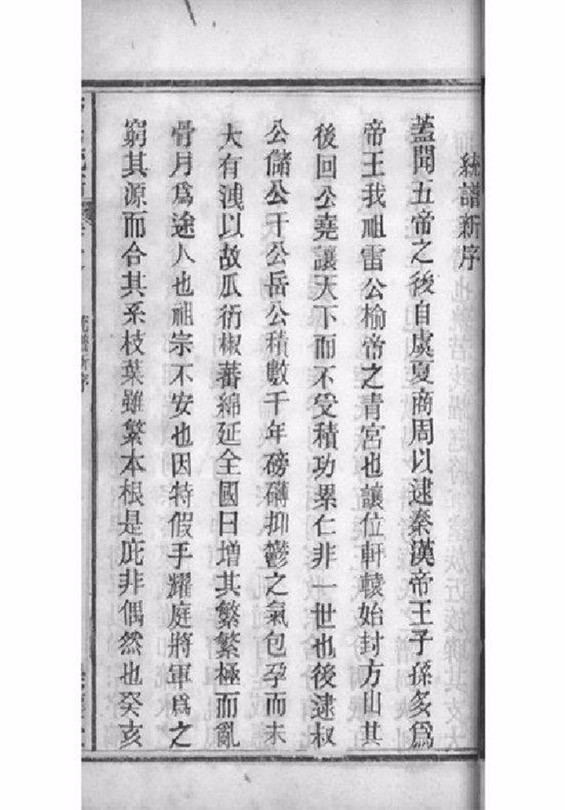 統譜新序
蓋聞五帝之後自虞夏商周以逮秦漢帝王子孫多爲
帝王我祖雷公榆帝之青宮也讓位軒轅始封方山其
後回公堯讓天下而不受積功累仁非一世也後逮叔
公儲公干公岳公積數千年磅礴抑鬱之氣包孕而未
大有洩以故瓜衍椒蕃綿延全國日增其繁繁極而亂
骨月爲途人也祖宗不安也因特假手耀庭將軍爲之
窮其源而合其系枝葉雖繁本根是庇非偶然也癸亥
統譜新序